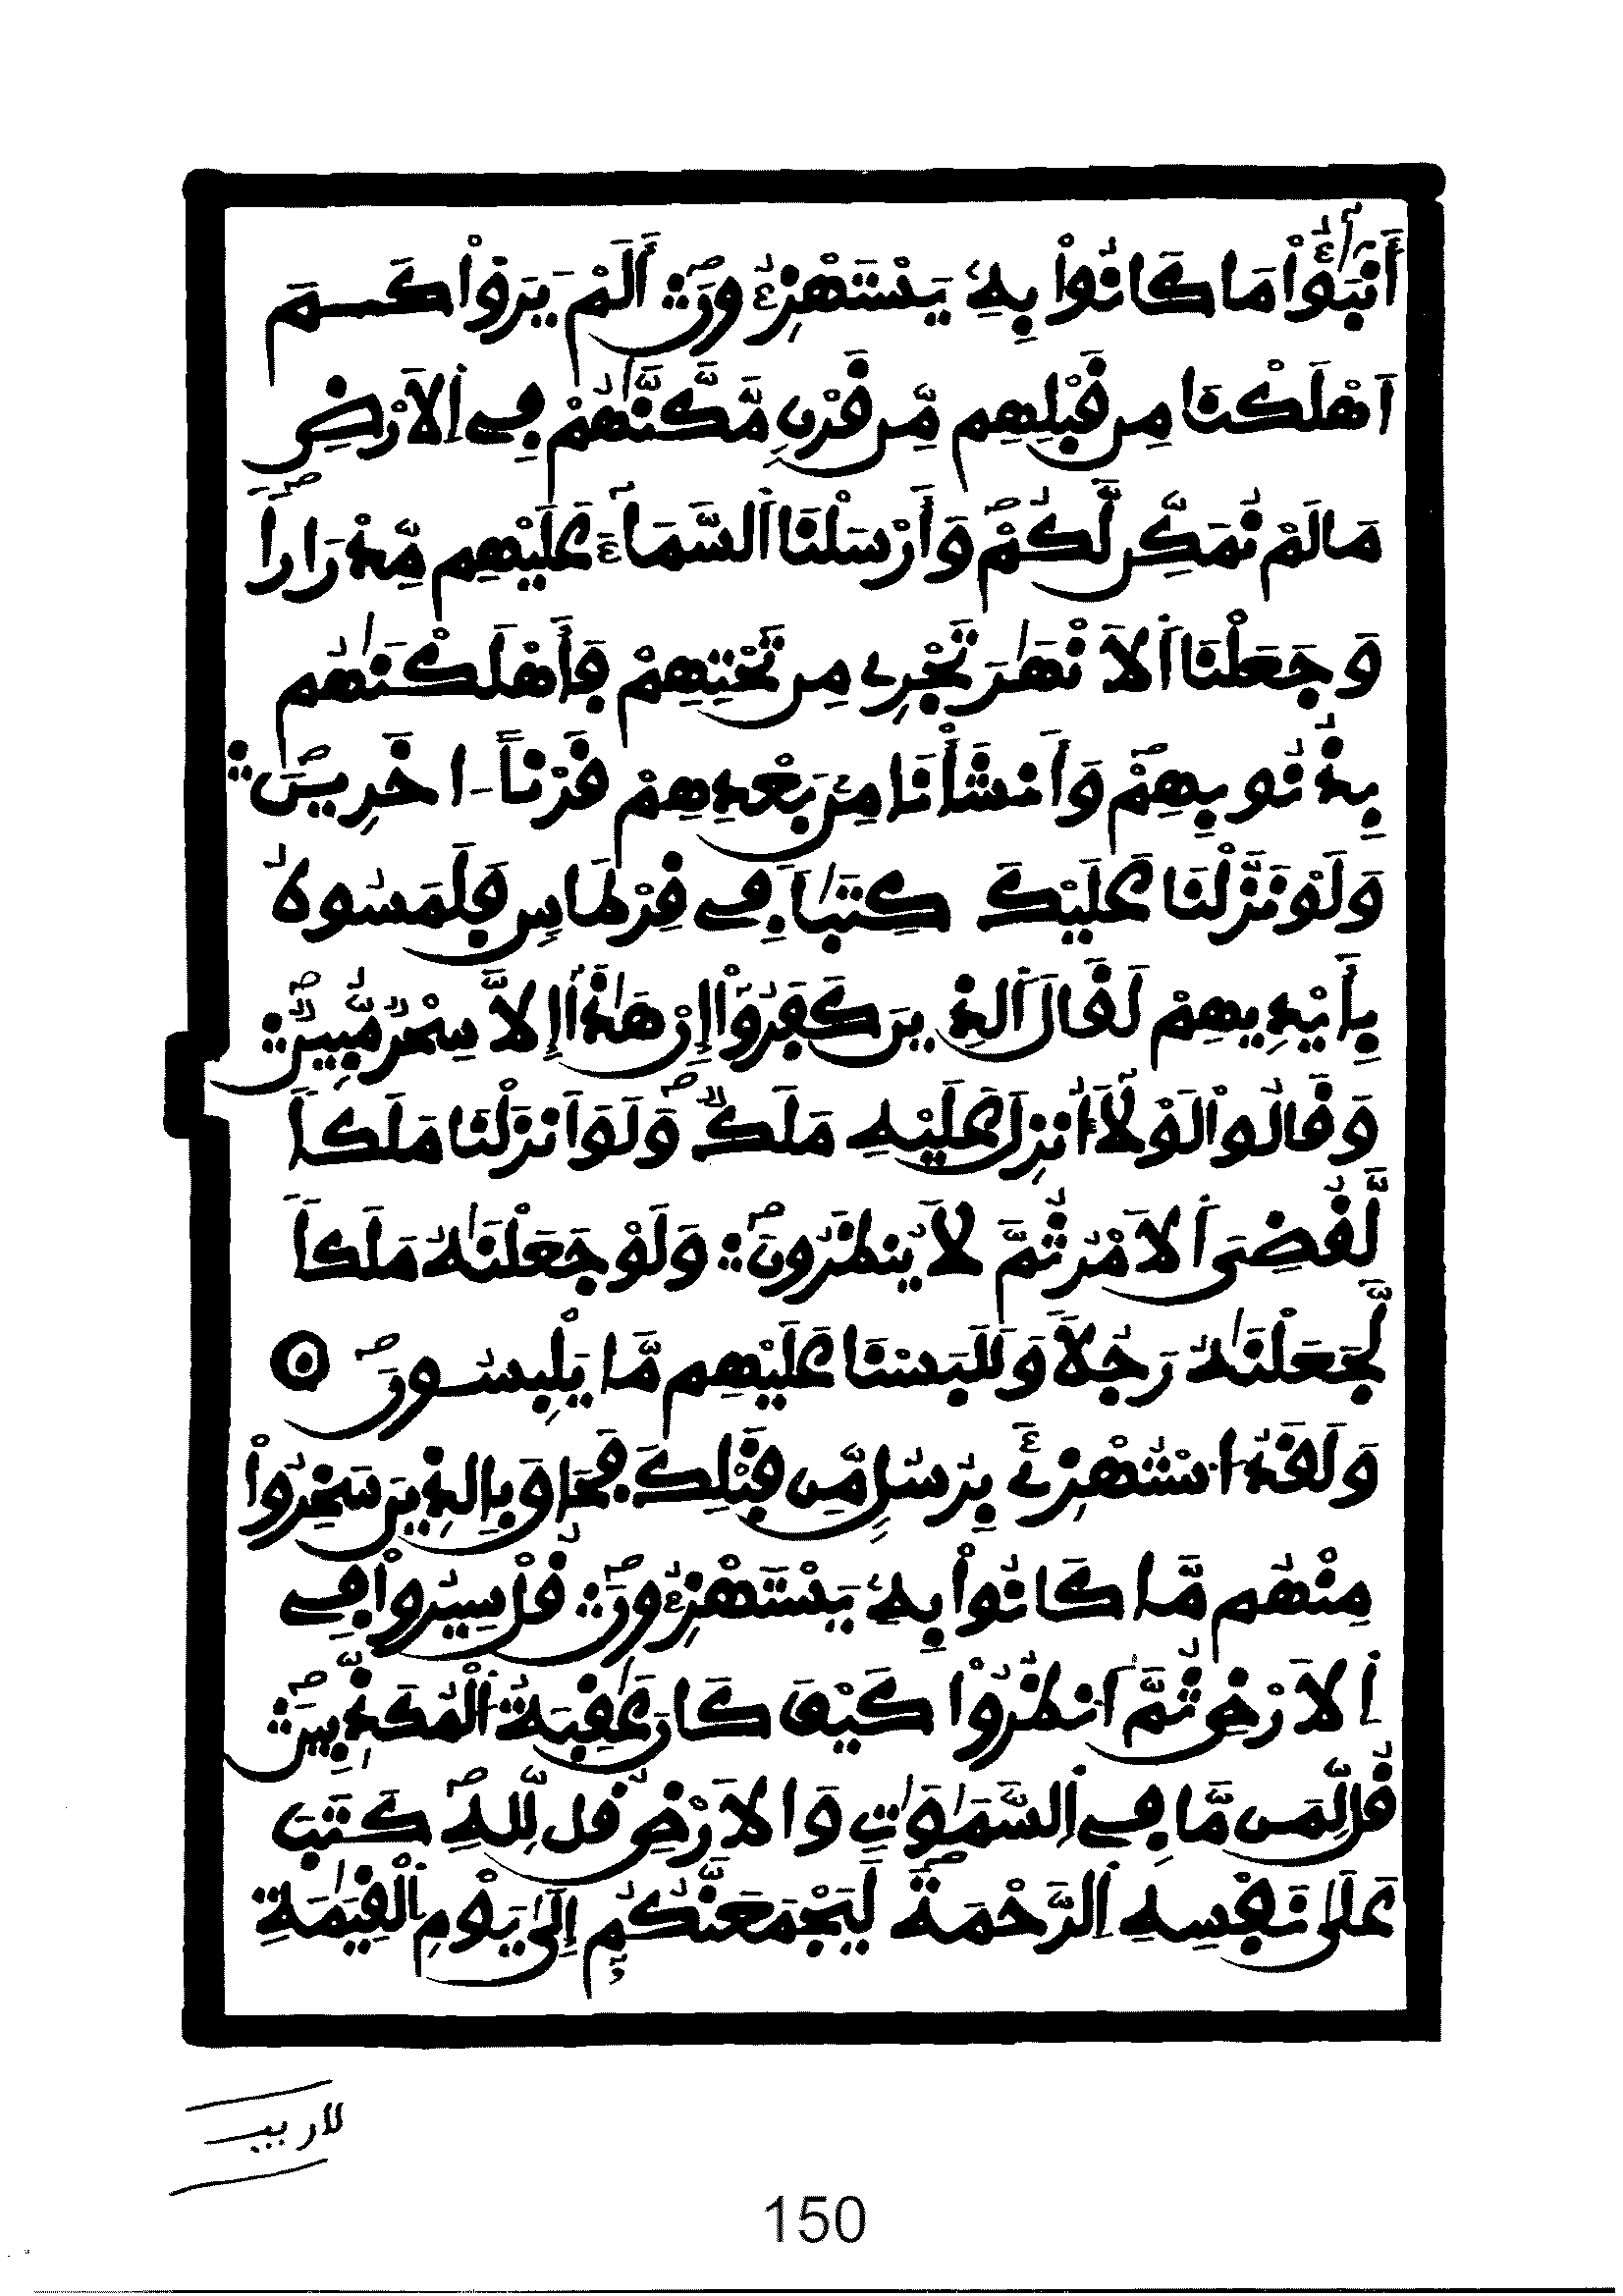 أَنۢبَٰٓؤُاْ مَا كَانُواْ بِهِۦ يَسْتَهْزِءُونَ ۝ أَلَمْ يَرَوْاْ كَمَ
اَهْلَكْنَا مِن قَبْلِهِم مِّن قَرْنٍ مَّكَّنَّٰهُمْ فِى اِ۬لَارْضِ
مَا لَمْ نُمَكِّن لَّكُمْ وَأَرْسَلْنَا اَ۬لسَّمَآءَ عَلَيْهِم مِّدْرَاراً
وَجَعَلْنَا اَ۬لَانْهَٰرَ تَجْرِے مِن تَحْتِهِمْ فَأَهْلَكْنَٰهُم
بِذُنُوبِهِمْ وَأَنشَأْنَا مِنۢ بَعْدِهِمْ قَرْناً اٰخَرِينَ ۝
وَلَوْ نَزَّلْنَا عَلَيْكَ كِتَٰباً فِى قِرْطَاسٍ فَلَمَسُوهُ
بِأَيْدِيهِمْ لَقَالَ اَ۬لذِينَ كَفَرُوٓاْ إِنْ هَٰذَآ إِلَّا سِحْرٌ مُّبِينٌ ۝
وَقَالُواْ لَوْلَآ أُنزِلَ عَلَيْهِ مَلَكٌ وَلَوَ اَنزَلْنَا مَلَكاً
لَّقُضِىَ اَ۬لَامْرُ ثُمَّ لَا يُنظَرُونَ ۝ وَلَوْ جَعَلْنَٰهُ مَلَكاً
لَّجَعَلْنَٰهُ رَجُلاً وَلَلَبَسْنَا عَلَيْهِم مَّا يَلْبِسُونَ ۝
وَلَقَدُ ا۟سْتُهْزِئَ بِرُسُلٍ مِّن قَبْلِكَ فَحَاقَ بِالذِينَ سَخِرُواْ
مِنْهُم مَّا كَانُواْ بِهِۦ يَسْتَهْزِءُونَ ۝ قُلْ سِيرُواْ فِى
اِ۬لَارْضِ ثُمَّ اَ۟نظُرُواْ كَيْفَ كَانَ عَٰقِبَةُ اُ۬لْمُكَذِّبِينَ ۝
قُل لِّمَن مَّا فِى اِ۬لسَّمَٰوَٰتِ وَالَارْضِ قُل لِّلهِ كَتَبَ
عَلَىٰ نَفْسِهِ اِ۬لرَّحْمَةَ لَيَجْمَعَنَّكُمُۥٓ إِلَىٰ يَوْمِ اِ۬لْقِيَٰمَةِ
لاريب
150